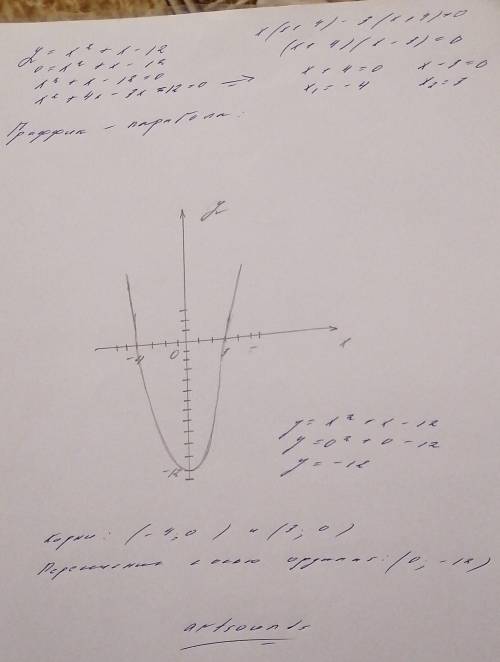 y = x² + x - 12
0 = x² + x - 12
x² + x - 12 = 0
x² + 4x - 3x - 12 = 0 =>
x(x + 4) - 3(x + 4) = 0
(x + 4)(x - 3) = 0
x + 4 = 0 x - 3 = 0
x₁ = -4 x₂ = 3
График - парабола:
y
-4 0 3 x
-12
y = x² + x - 12
y = 0² + 0 - 12
y = -12
Корни: (-4; 0) и (3; 0)
Пересечение с осью ординат: (0, -12)
artsounds